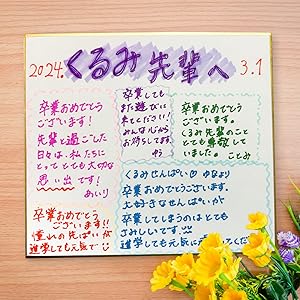 2024.
くるみ先輩へ
3.1
卒業おめでとう
ございます!
先輩と過ごした
日々は、私たちに
とってとても大切な
思い出です!
あいり
卒業しても
また遊びに
来てください!
みんな心から
お待ちしてます
卒業おめでとう
ございます。
くるみ先輩のこと
とても尊敬して
いました。
ことみ
くるみせんぱい♡ ゆなより
卒業おめでとうございます。
大好きなせんぱいが
卒業してしまうのはとても
さみしいです
卒業おめでとう
ございます!!
憧れの先ぱいが
進学しても元気で
進学しても元気に